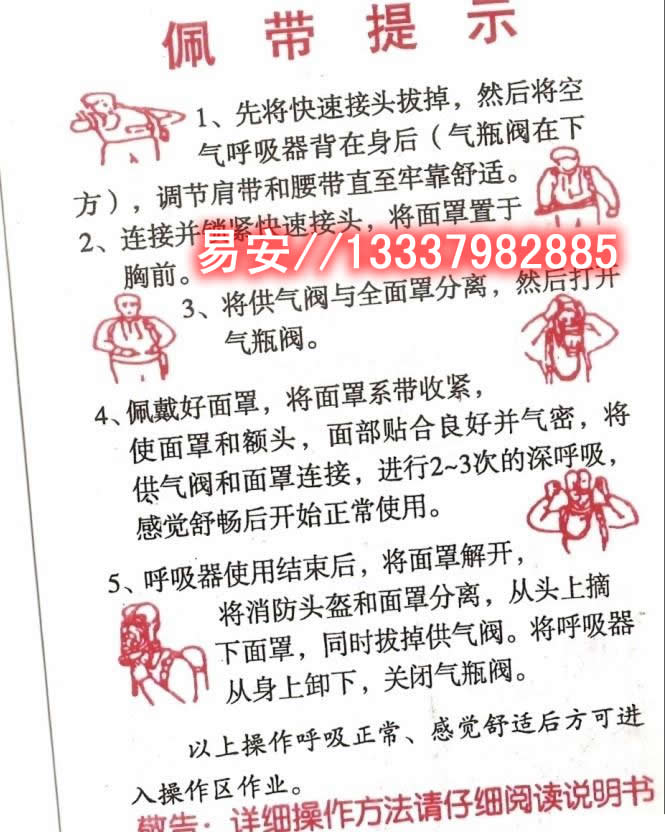 佩带提示
1、先将快速接头拔掉，然后将空
气呼吸器背在身后（气瓶阀在下
方），调节肩带和腰带直至牢靠舒适。
2、连接并锁紧快速接头，将面罩置于
胸前。
易安//13337982885
3、将供气阀与全面罩分离，然后打开
气瓶阀。
4、佩戴好面罩，将面罩系带收紧，
使面罩和额头，面部贴合良好并气密，将
供气阀和面罩连接，进行2~3次的深呼吸，
感觉舒畅后开始正常使用。
5、呼吸器使用结束后，将面罩解开，
将消防头盔和面罩分离，从头上摘
下面罩，同时拔掉供气阀。将呼吸器
从身上卸下，关闭气瓶阀。
以上操作呼吸正常、感觉舒适后方可进
入操作区作业。
敬告：详细操作方法请仔细阅读说明书